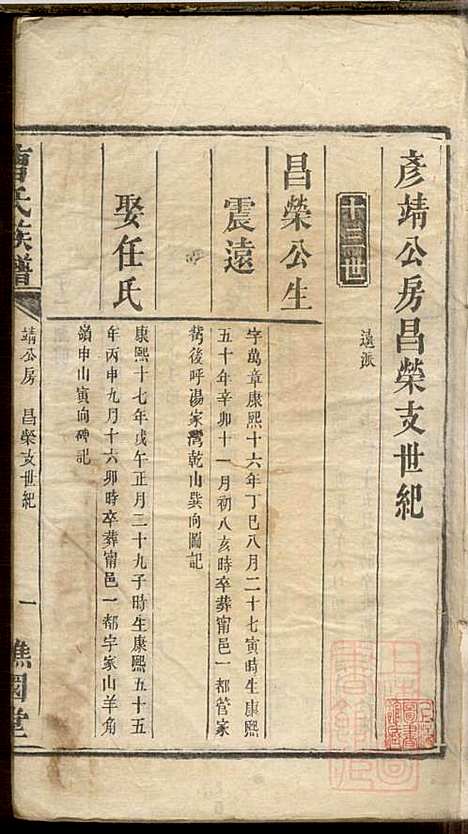 彥靖公房昌榮支世紀
十三世
遠派
昌榮公生
震遠
字萬章康熙十六年丁巳八月二十七寅時生康熙
五十年辛卯十一月初八亥時卒葬甯邑一都管家
衝後呼湯家灣乾山巽向圖記
娶任氏
康熙十七年戊午正月二十九子時生康熙五十五
年丙申九月十六卯時卒葬甯邑一都字家山羊角
嶺申山寅向碑記
曹氏族譜
靖公房 昌榮支世紀
一
譙國堂